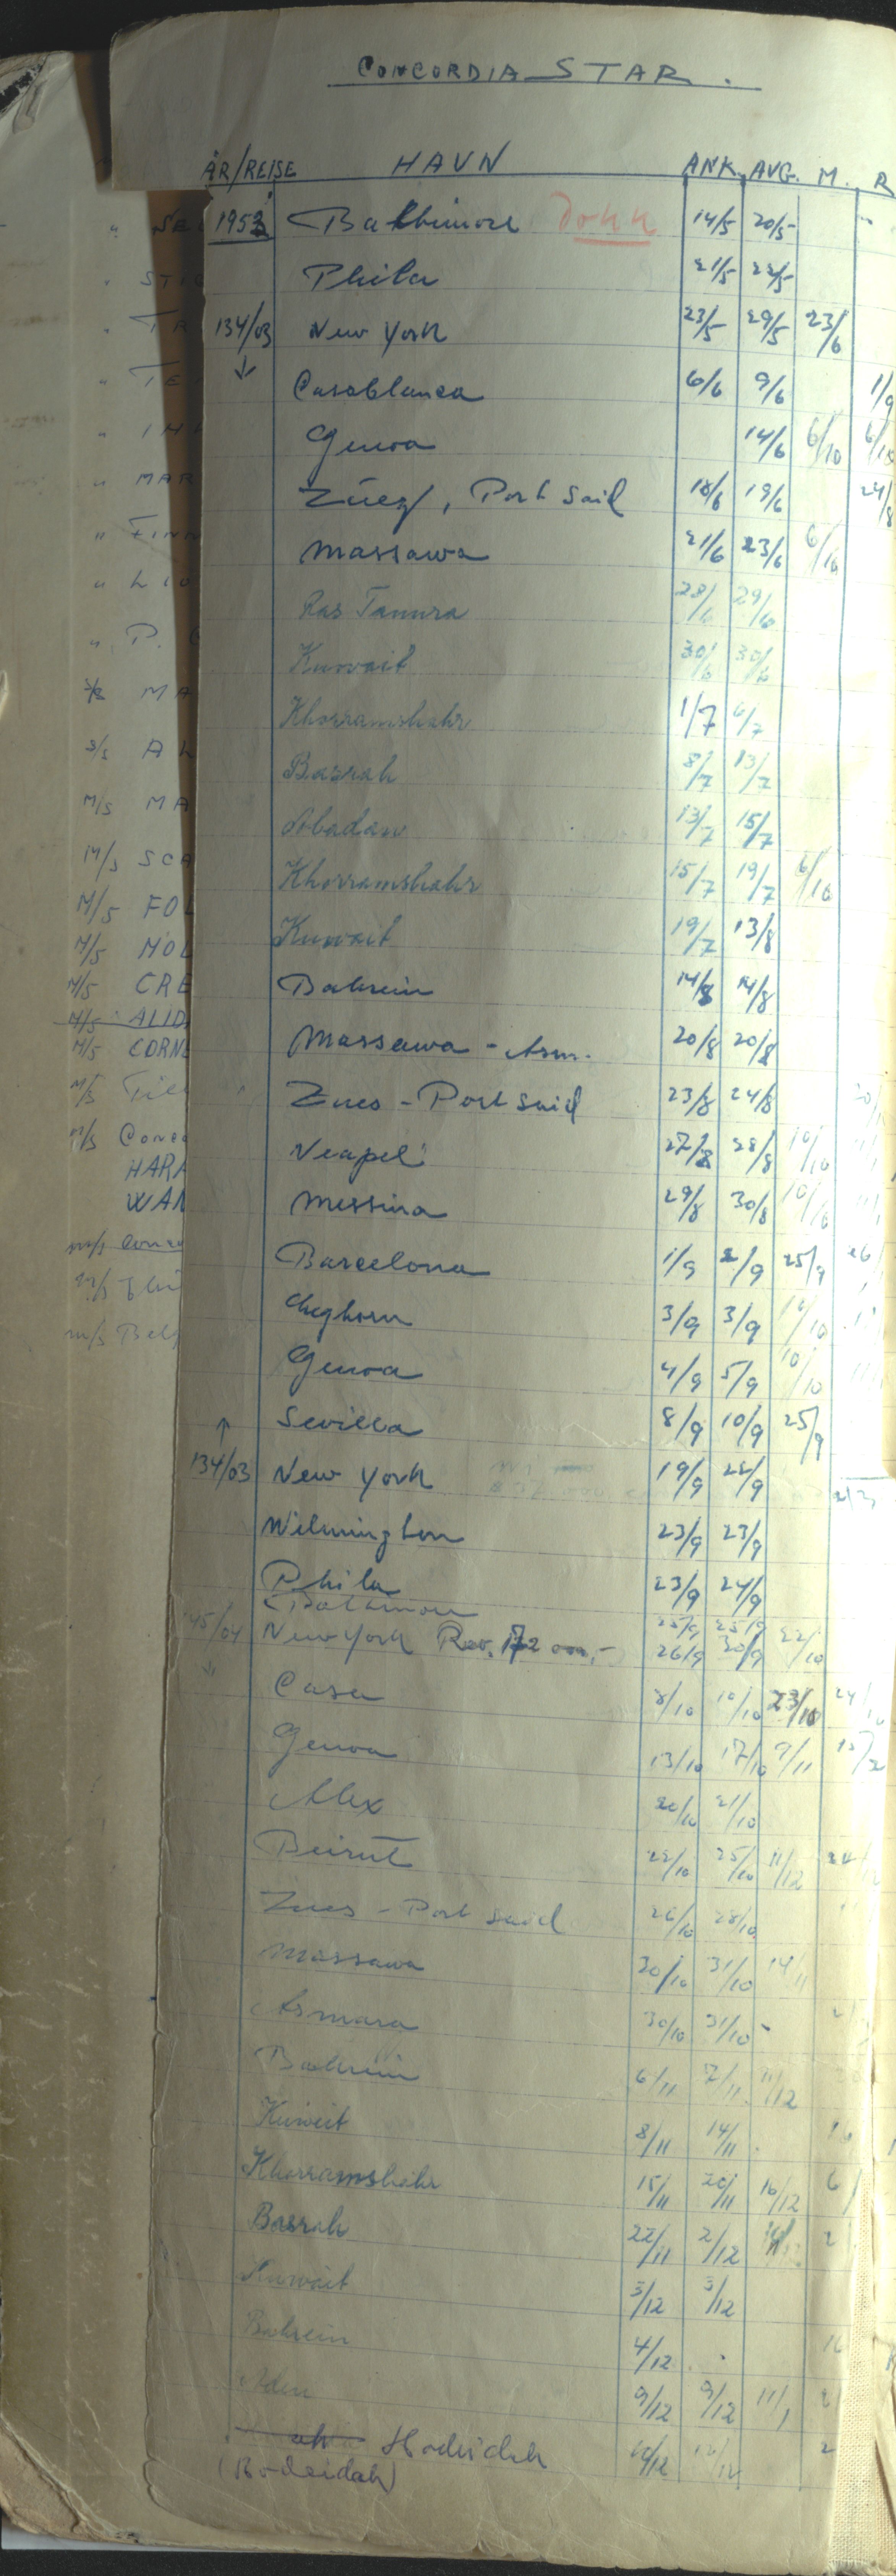 CONCORDIA STAR.
ÅR/REISE HAVN ANK. AVG. M. R
1953 Balthimore Dokk 14/5 20/5
Phila 21/5 22/5
134/03 New York 23/5 29/5 23/6
↓ Casablanca 6/6 9/6 1/9
Genoa 14/6 6/10 6/10
Zuez, Port Said 18/6 19/6 24/8
Massawa 21/6 23/6 6/10
Ras Tanura 28/6 29/6
Kuwait 30/6 30/6
Khorramshahr 1/7 6/7
Basrah 8/7 13/7
Abadan 13/7 15/7
Khorramshahr 15/7 19/7 6/10
Kuwait 19/7 13/8
Bahrein 14/8 14/8
Massawa - Asm. 20/8 20/8
Zues - Port Said 23/8 24/8
Neapel 27/8 28/8 10/10
Messina 29/8 30/8 10/10
Barcelona 1/9 2/9 25/9
Leghorn 3/9 3/9 10/10
Genoa 4/9 5/9 10/10
↑ Sevilla 8/9 10/9 25/9
134/03 New York 19/9 22/9
Wilmington 23/9 23/9
Phila 23/9 24/9
Baltimore 25/9 25/9
145/04 New York 26/9 30/9 22/10
↓ Casa 8/10 10/10 23/10
Genoa 13/10 17/10 9/11
Alex 20/10 21/10
Beirut 22/10 25/10 11/12
Zues - Port Said 26/10 28/10
Massawa 30/10 31/10 14/11
Asmara 30/10 31/10 -
Bahrein 6/11 7/11 11/12
Kuweit 8/11 14/11
Khorramshahr 15/11 20/11 16/12
Basrah 22/11 2/12
Kuwait 3/12 3/12
Bahrein 4/12
Aden 9/12 9/12 11/1
Hodeidah
(Hodeidah)
" STI
" MAR
" FINN
" P.
M/S MA
M/S SCA
M/S FOL
M/S MOL
M/S CRE
M/S ALID
M/S CORNE
M/S
M/S Conco
HARA
WAN